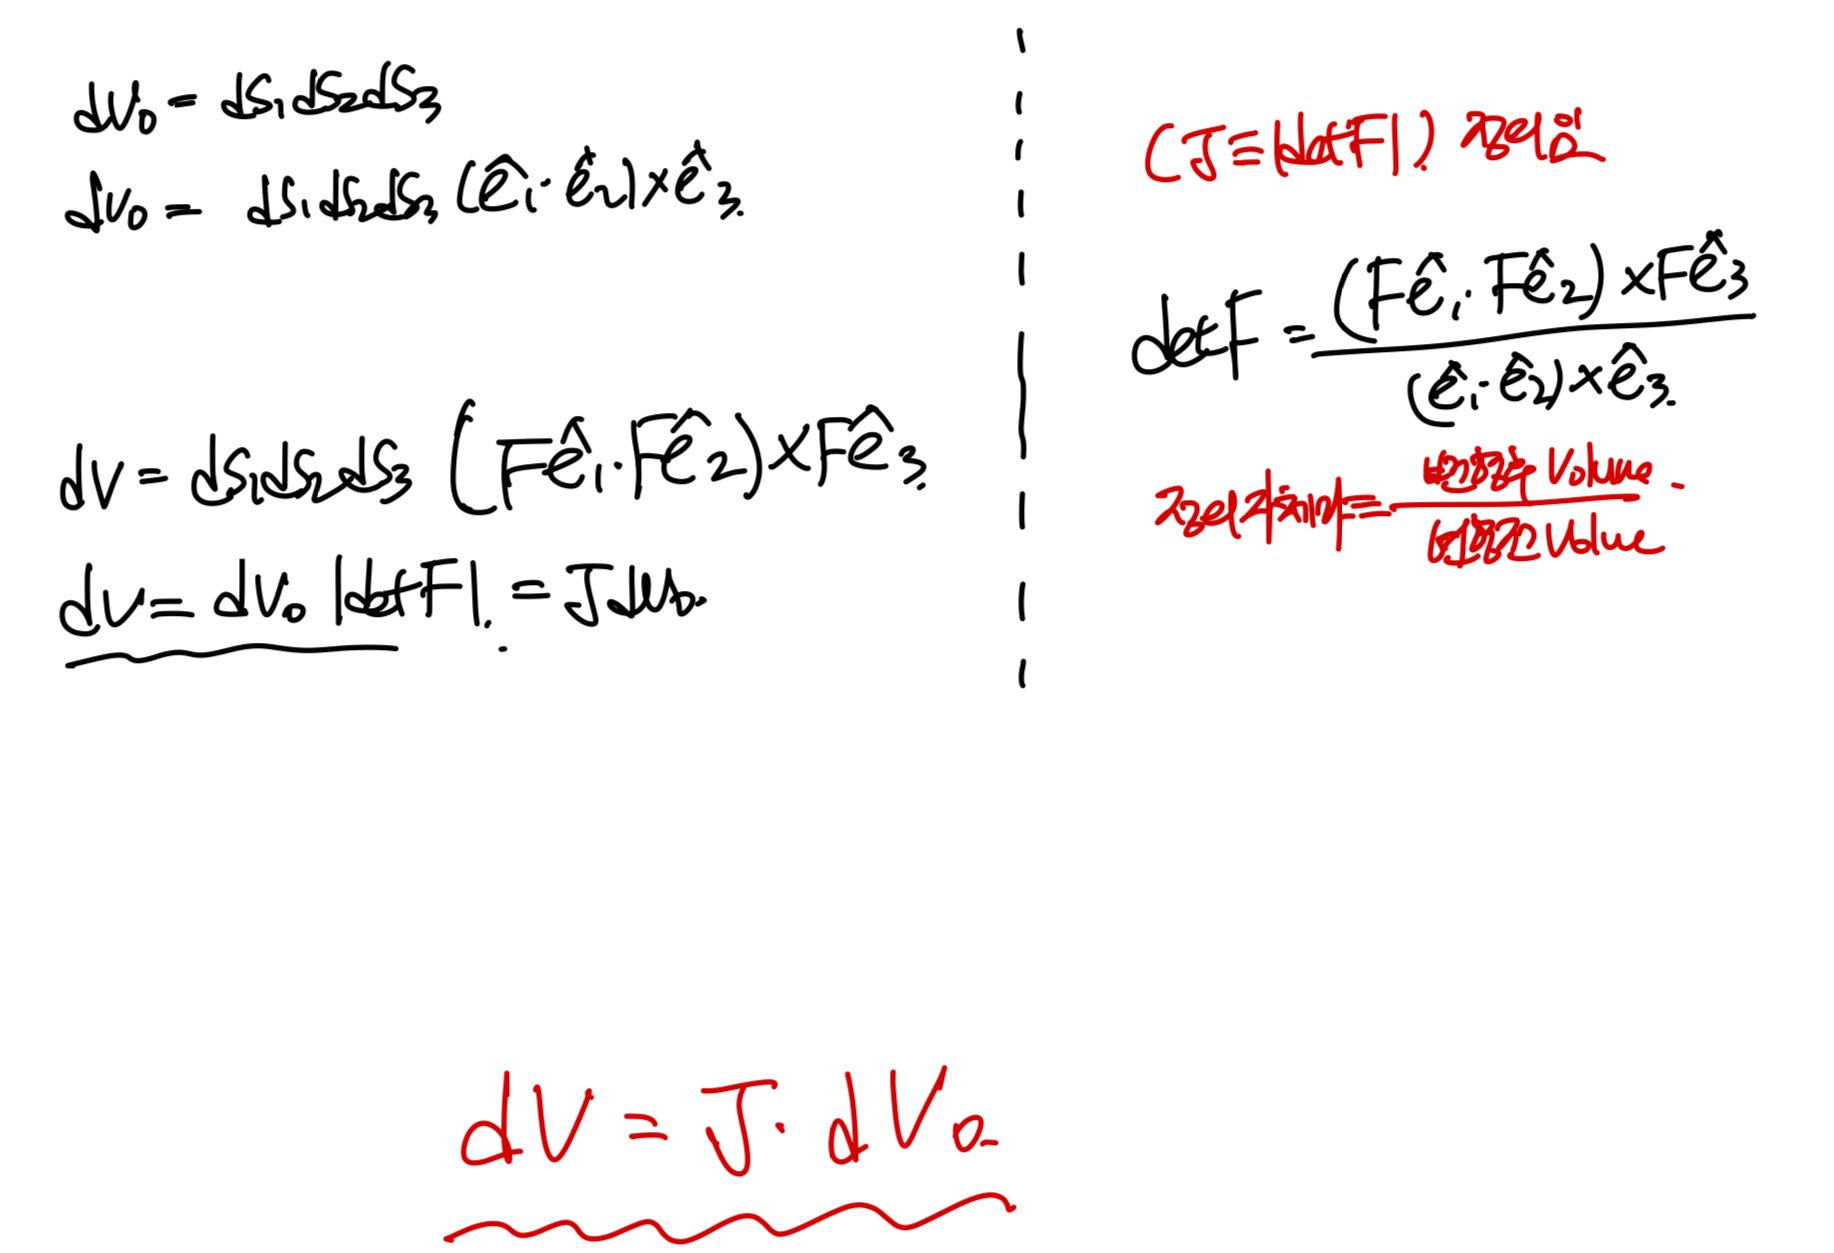 dV₀ = dS₁dS₂dS₃
dV₀ = dS₁dS₂dS₃ (ê₁·ê₂)×ê₃.
dV = dS₁dS₂dS₃ (Fê₁·Fê₂)×Fê₃.
dV = dV₀ |detF|. = J dV₀.
(J≡|detF|) 정의임
detF = (Fê₁·Fê₂)×Fê₃
(ê₁·ê₂)×ê₃.
정의 자체가 = 변형후 Volume.
변형전 Volume
dV = J· dV₀